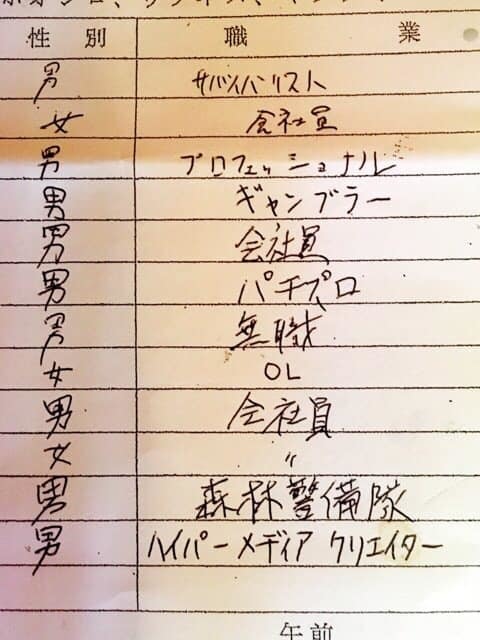 性別 職業
男 サバイバリスト
女 会社員
男 プロフェッショナル
男 ギャンブラー
男 会社員
男 パチプロ
男 無職
女 OL
男 会社員
女 〃
男 森林警備隊
男 ハイパーメディア クリエイター
午前